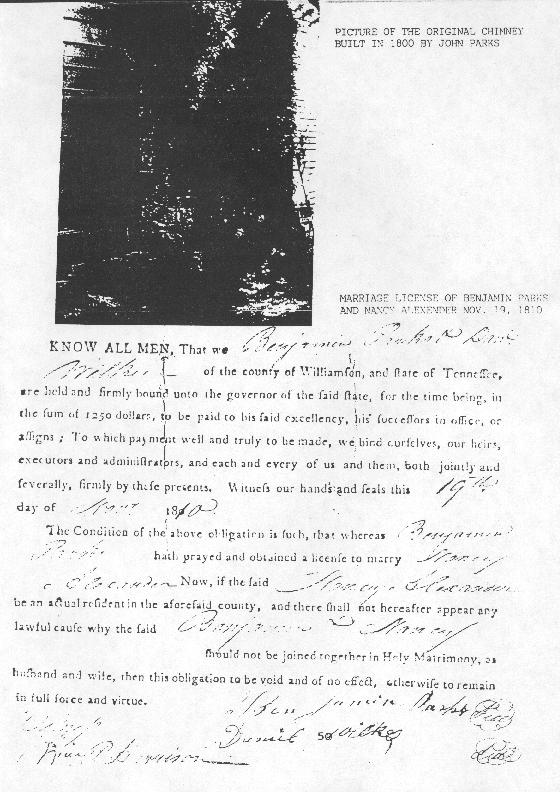 PICTURE OF THE ORIGINAL CHIMNEY
BUILT IN 1800 BY JOHN PARKS
MARRIAGE LICENSE OF BENJAMIN PARKS
AND NANCY ALEXENDER NOV. 19, 1810
KNOW ALL MEN, That we Benjamin Parks &
of the county of Williamson, and state of Tennessee,
are held and firmly bound unto the governor of the said state, for the time being, in
the sum of 1250 dollars, to be paid to his said excellency, his successors in office, or
assigns; To which payment well and truly to be made, we bind ourselves, our heirs,
executors and administrators, and each and every of us and them, both jointly and
severally, firmly by these presents. Witness our hands and seals this 19th
day of Nov 1810
The Condition of the above obligation is such, that whereas Benjamin
Parks hath prayed and obtained a license to marry Nancy
Alexander Now, if the said Nancy Alexander
be an actual resident in the aforesaid county, and there shall not hereafter appear any
lawful cause why the said Benjamin & Nancy
should not be joined together in Holy Matrimony, as
husband and wife, then this obligation to be void and of no effect, otherwise to remain
in full force and virtue. Benjamin Parks Seal
Daniel 50 Wilkes Seal